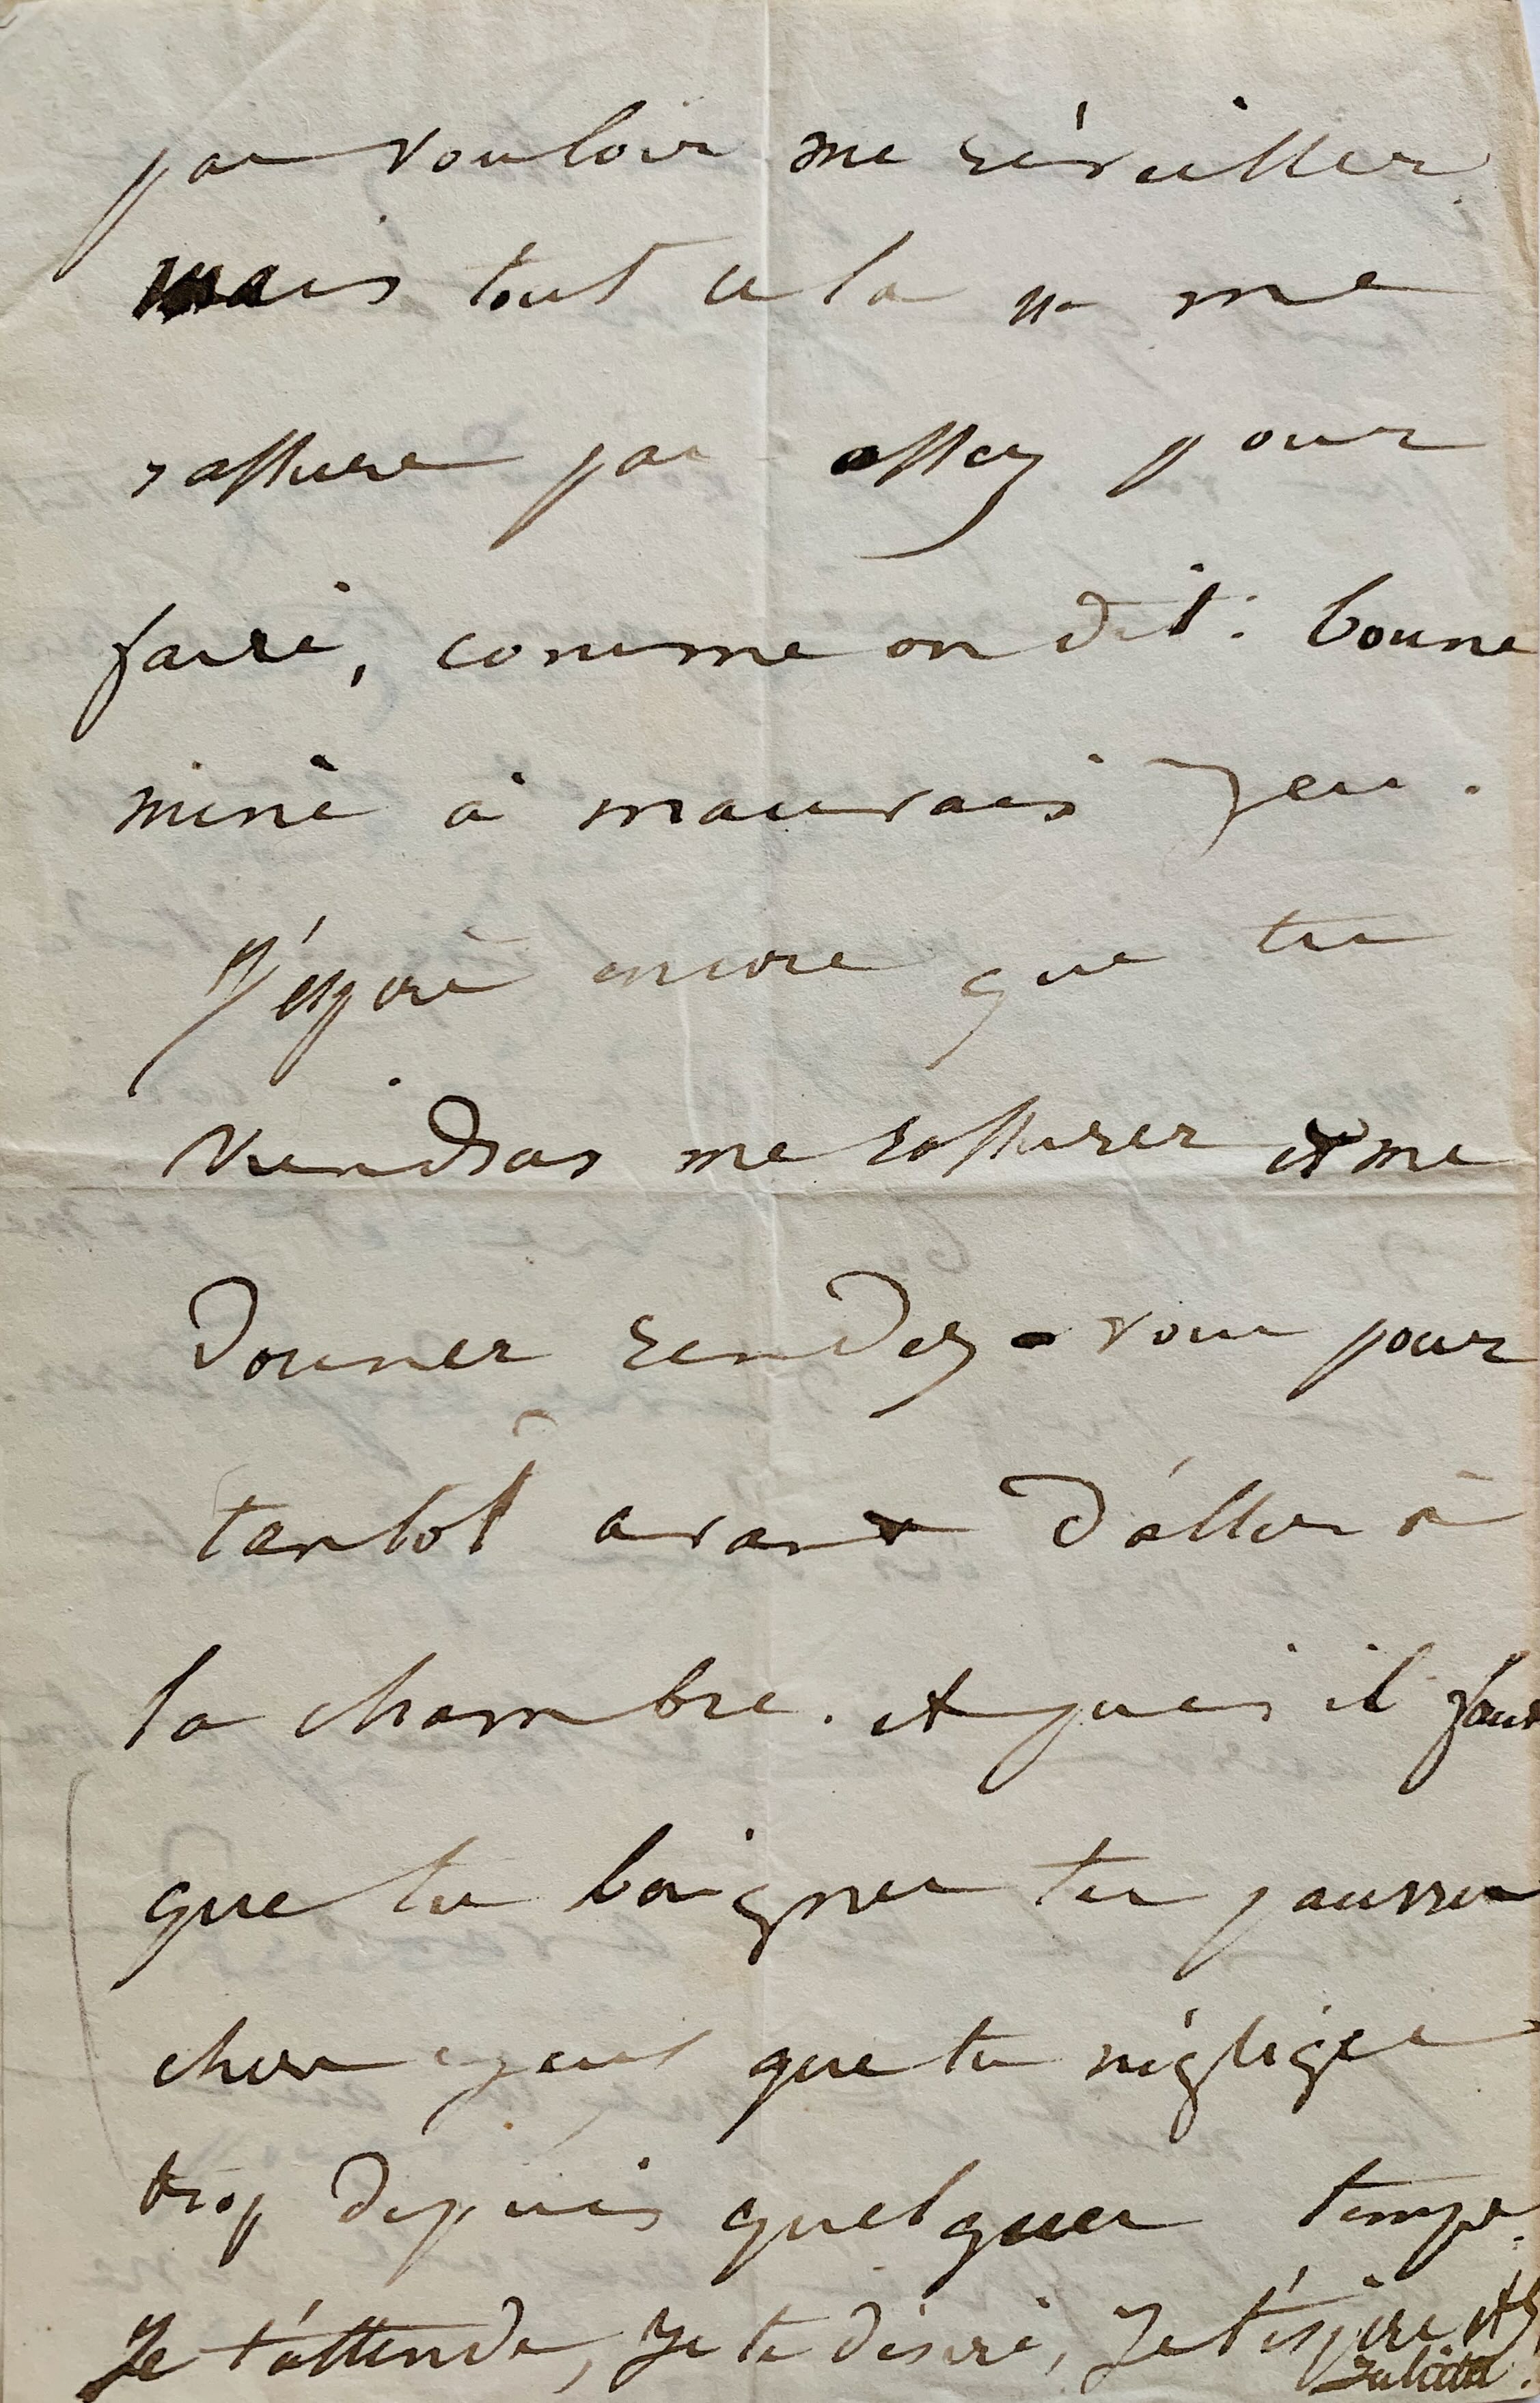 pas vouloir me réveiller.
mais tout cela ne me
rassure pas assez pour
faire, comme on dit : bonne
mine à mauvais jeu.
J'espère encore que tu
viendras me rassurer et me
donner rendez-vous pour
tantôt avant d'aller à
la chambre. et puis il faut
que tu baignes tes pauvres
chers yeux que tu négliges
trop depuis quelques temps.
Je t'attends, je te désire, je t'espère et
Juliette.